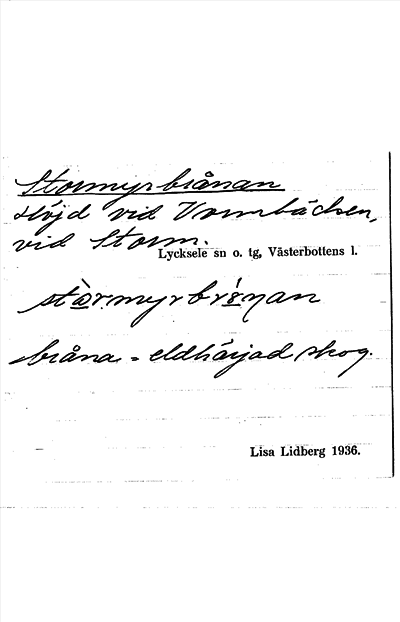 Stormyrbrånan
Höjd vid Vormbäcken,
vid Storm.
Lycksele sn o. tg, Västerbottens l.
bråna = eldhärjad skog.
Lisa Lidberg 1936.